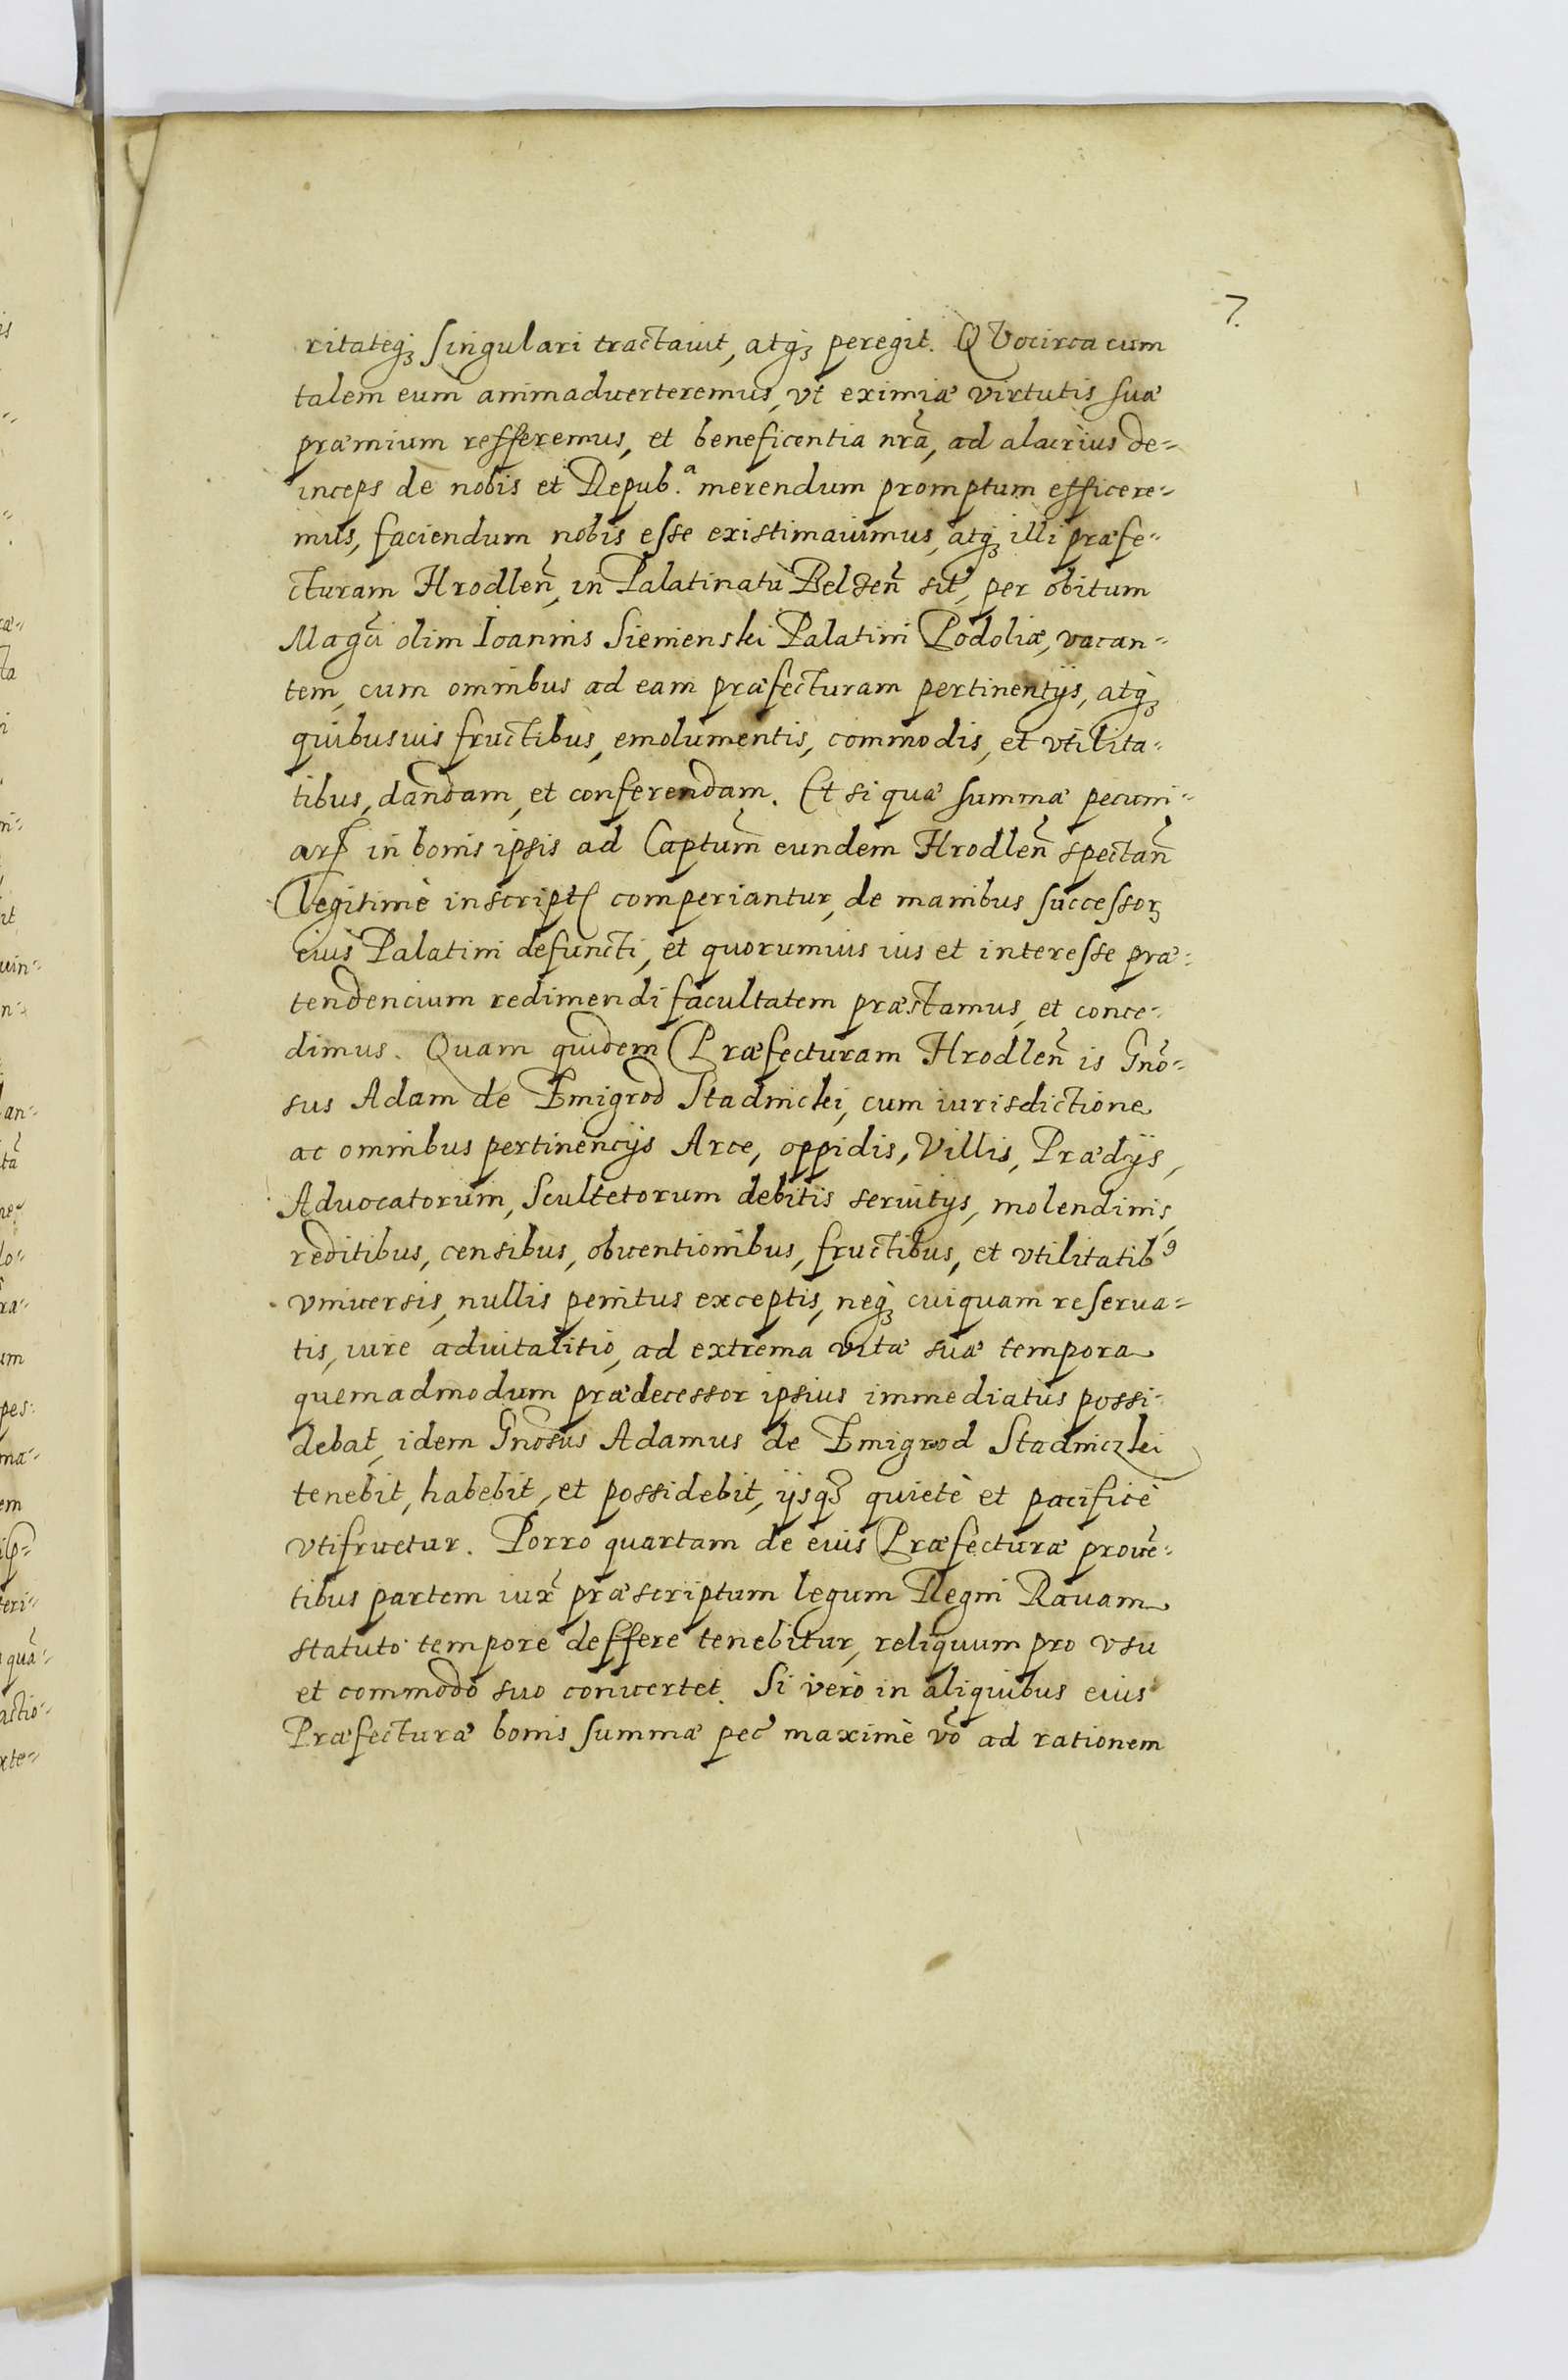 7.
ritateqꝫ singulari tractauit, atqꝫ peregit. QVocirca cum
talem eum animaduerteremus, vt eximiæ virtutis suæ
præmium refferemus, et beneficentia nrã, ad alacrius de-
inceps de nobis et Repub.ª merendum promptum efficere-
mus, faciendum nobis esse existimauimus, atqꝫ illi præfe-
cturam Hrodleñ, in Palatinatu Belzeñ sit̃, per obitum
Magci olim Ioannis Sienienski Palatini Podoliæ, vacan-
tem, cum omnibus ad eam præfecturam pertinentijs, atqꝫ
quibusuis fructibus, emolumentis, commodis, et vtilita-
tibus, dandam, et conferendam. Et si quæ summæ pecuni-
arꝝ in bonis ipsis ad Captum̃ eundem Hrodleñ spectañ
legitimè inscriptæ comperiantur, de manibus successorꝝ
eius Palatini defuncti, et quorumuis ius et interesse præ-
tendencium redimendi facultatem præstamus, et conce-
dimus. Quam quidem Præfecturam Hrodleñ is Gnõ-
sus Adam de Zmigrod Stadnicki, cum iurisdictione
ac omnibus pertinencijs Arce, oppidis, Villis, Prædijs,
Aduocatorum, Scultetorum debitis seruitijs, molendinis,
reditibus, censibus, obuentionibus, fructibus, et vtilitatibꝰ
vniuersis, nullis penitus exceptis, neqꝫ cuiquam reserua-
tis, iure aduitalitio, ad extrema vitæ suæ tempora
quemadmodum prædecessor ipsius immediatus possi-
debat, idem Gnõsus Adamus de Zmigrod Stadniczki
tenebit, habebit, et possidebit, ijsqꝫ quietè et pacificè
vtifruetur. Porro quartam de eius Præfecturæ prouẽ-
tibus partem iux̃ præscriptum legum Regni Rauam
statuto tempore deffere tenebitur, reliquum pro vsu
et commodo suo conuertet. Si vero in aliquibus eius
Præfecturæ bonis summæ pec̃ maximè võ ad rationem